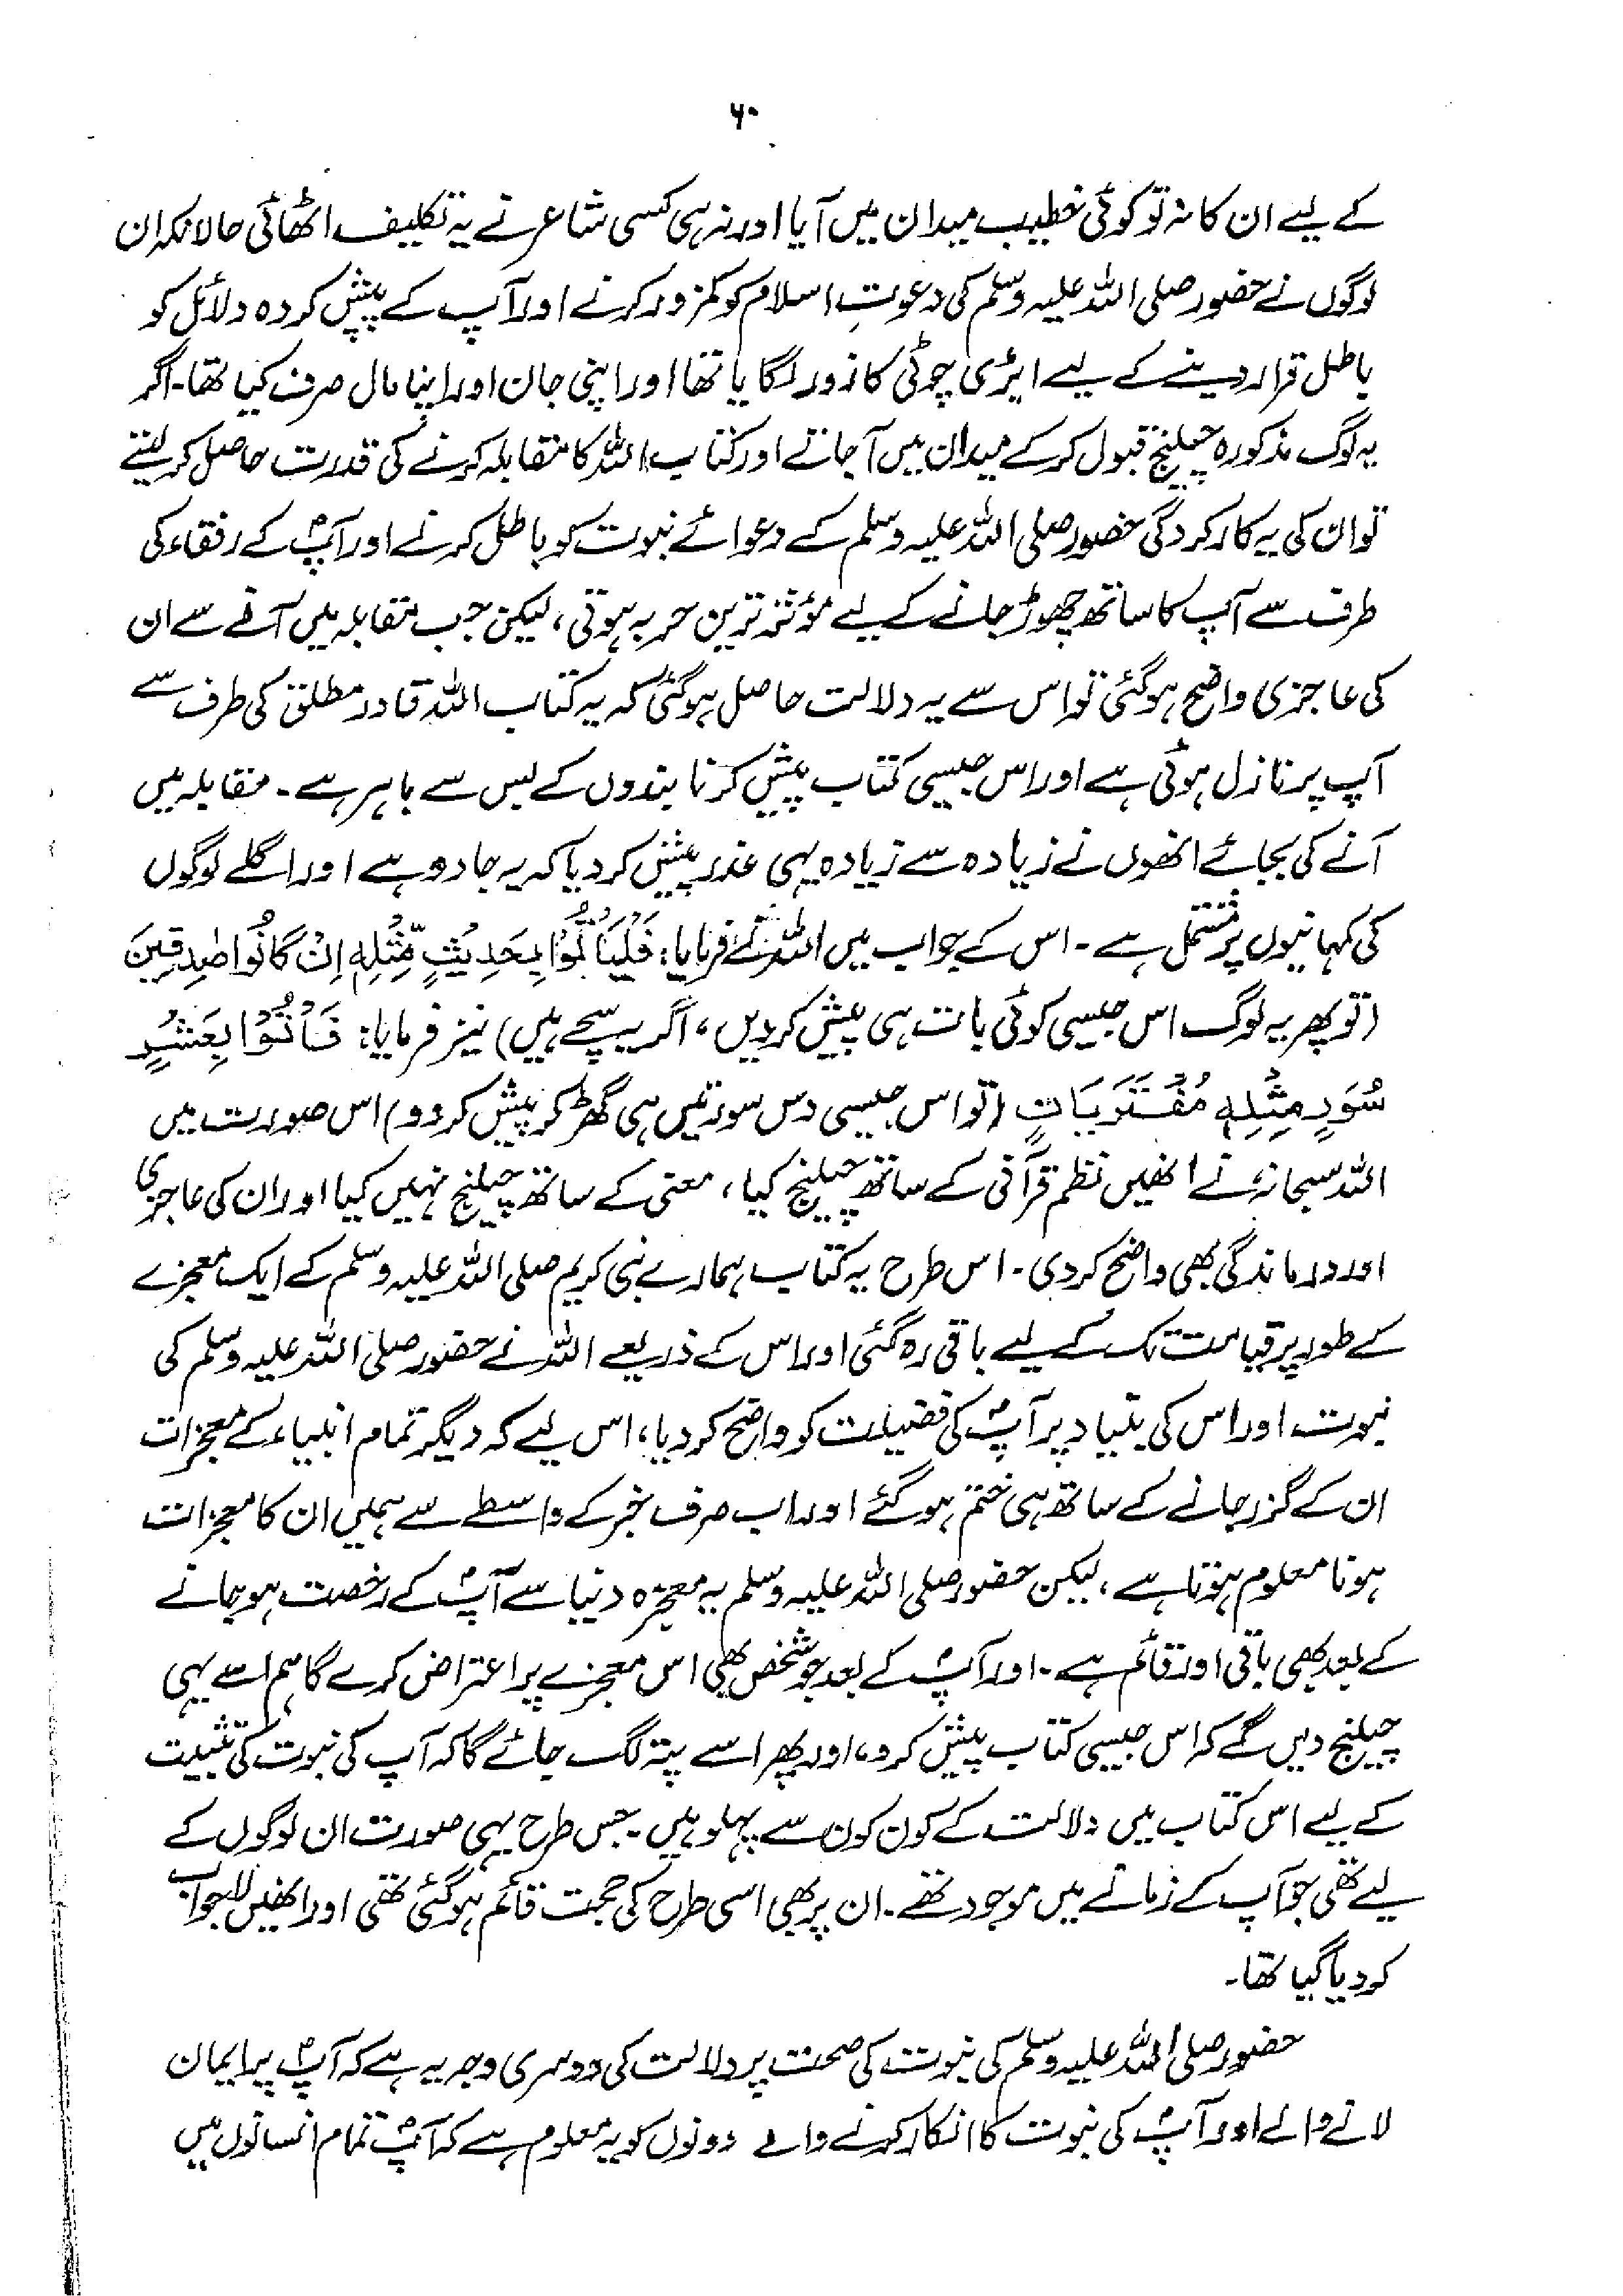 ۶۰
کے لیے ان کا نہ تو کوئی خطیب میدان میں آیا اور نہ ہی کسی شاعر نے یہ تکلیف اٹھائی حالانکہ ان
لوگوں نے حضور صلی اللہ علیہ وسلم کی دعوتِ اسلام کو کمزور کرنے اور آپ کے پیش کردہ دلائل کو
باطل قرار دینے کے لیے ایڑی چوٹی کا زور لگایا تھا اور اپنی جان اور اپنا مال صرف کیا تھا۔ اگر
یہ لوگ مذکورہ چیلنج قبول کرکے میدان میں آجاتے اور کتاب اللہ کا مقابلہ کرنے کی قدرت حاصل کرلیتے
تو ان کی یہ کارکردگی حضور صلی اللہ علیہ وسلم کے دعوائے نبوت کو باطل کرنے اور آپؐ کے رفقاء کی
طرف سے آپ کا ساتھ چھوڑ جانے کے لیے مؤثر ترین حربہ ہوتی، لیکن جب مقابلہ میں آنے سے ان
کی عاجزی واضح ہوگئی تو اس سے یہ دلالت حاصل ہوگئی کہ یہ کتاب اللہ قادر مطلق کی طرف سے
آپ پر نازل ہوئی ہے اور اس جیسی کتاب پیش کرنا بندوں کے بس سے باہر ہے۔ مقابلہ میں
آنے کی بجائے انھوں نے زیادہ سے زیادہ یہی عذر پیش کردیا کہ یہ جادو ہے اور اگلے لوگوں
کی کہانیوں پر مشتمل ہے۔ اس کے جواب میں اللہ نے فرمایا: فَلْیَاْتُوْا بِحَدِیْثٍ مِّثْلِہٖ اِنْ کَانُوْا صٰدِقِیْنَ
(تو پھر یہ لوگ اس جیسی کوئی بات ہی پیش کردیں، اگر یہ سچے ہیں) نیز فرمایا: فَأْتُوْا بِعَشْرِ
سُوَرٍ مِثْلِہٖ مُفْتَرَیَاتٍ (تو اس جیسی دس سورتیں ہی گھڑ کر پیش کردو) اس صورت میں
اللہ سبحانہٗ نے انھیں نظم قرآنی کے ساتھ چیلنج کیا، معنی کے ساتھ چیلنج نہیں کیا اور ان کی عاجزی
اور درماندگی بھی واضح کردی۔ اس طرح یہ کتاب ہمارے نبی کریم صلی اللہ علیہ وسلم کے ایک معجزے
کے طور پر قیامت تک کے لیے باقی رہ گئی اور اس کے ذریعے اللہ نے حضور صلی اللہ علیہ وسلم کی
نبوت اور اس کی بنیاد پر آپؐ کی فضیلت کو واضح کردیا، اس لیے کہ دیگر تمام انبیاء کے معجزات
ان کے گزر جانے کے ساتھ ہی ختم ہوگئے اور اب صرف خبر کے واسطے سے ہمیں ان کا معجزات
ہونا معلوم ہوتا ہے، لیکن حضور صلی اللہ علیہ وسلم یہ معجزہ دنیا سے آپؐ کے رخصت ہو جانے
کے بعد بھی باقی اور قائم ہے۔ اور آپؐ کے بعد جو شخص بھی اس معجزے پر اعتراض کرے گا ہم اسے یہی
چیلنج دیں گے کہ اس جیسی کتاب پیش کرو، اور پھر اسے پتہ لگ جائے گا کہ آپ کی نبوت کی تثبیت
کے لیے اس کتاب میں دلالت کے کون کون سے پہلو ہیں۔ جس طرح یہی صورت ان لوگوں کے
لیے تھی جو آپ کے زمانے میں موجود تھے۔ ان پر بھی اسی طرح کی حجت قائم ہوگئی تھی اور انھیں لاجواب
کردیا گیا تھا۔
حضور صلی اللہ علیہ وسلم کی نبوت کی صحت پر دلالت کی دوسری وجہ یہ ہے کہ آپؐ پر ایمان
لانے والے اور آپؐ کی نبوت کا انکار کرنے والے دونوں کو یہ معلوم ہے کہ آپؐ تمام انسانوں میں